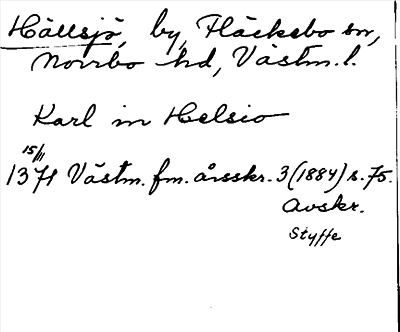 Hällsjö, by, Fläckebo sn,
Norrbo hd, Västm. l.
Karl in Helsio
15/11
1371 Västm. fm. årsskr. 3 (1884) s. 75.
Avskr.
Styffe